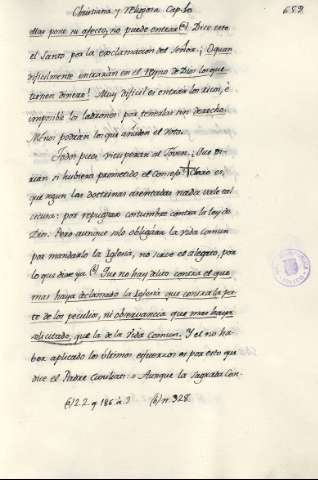 Christiana y Religiosa Cap.
659.
dlas pone ni afecto, no puede entrar (a) Dice esto
el Santo por la exclamación del Señor: ¡O quan
dificilmente entrarán en el Reyno de Dios los que
tienen dinero! Muy dificil es entrar los ricos, é
imposible los ladrones por tenerlas sin derecho.
Menos podrán los que añaden el voto.
Todos pues vituperan al Joven. ¡Que di-
rian si hubiera prometido el Consejo? Claro es,
que segun las doctrinas asentadas nada vale tal
escusa: por repugnar costumbre contra la ley de
Dios. Pero aunque solo obligára la vida comun
por mandarlo la Iglesia, no sirve el alegato, por
lo que dixe ya (b) Que no hay delito contra el que
mas haya declamado la Iglesia que contra la pes-
te de los peculios, ni observancia que mas haya
solicitado, que la de la vida comun. Y el no ha-
ber aplicado los últimos esfuerzos es por esto que
dice el Padre Cuniliati: Aunque la sagrada Con-
(a) 2. 2. q 186. a. 3
(b) n. 328.